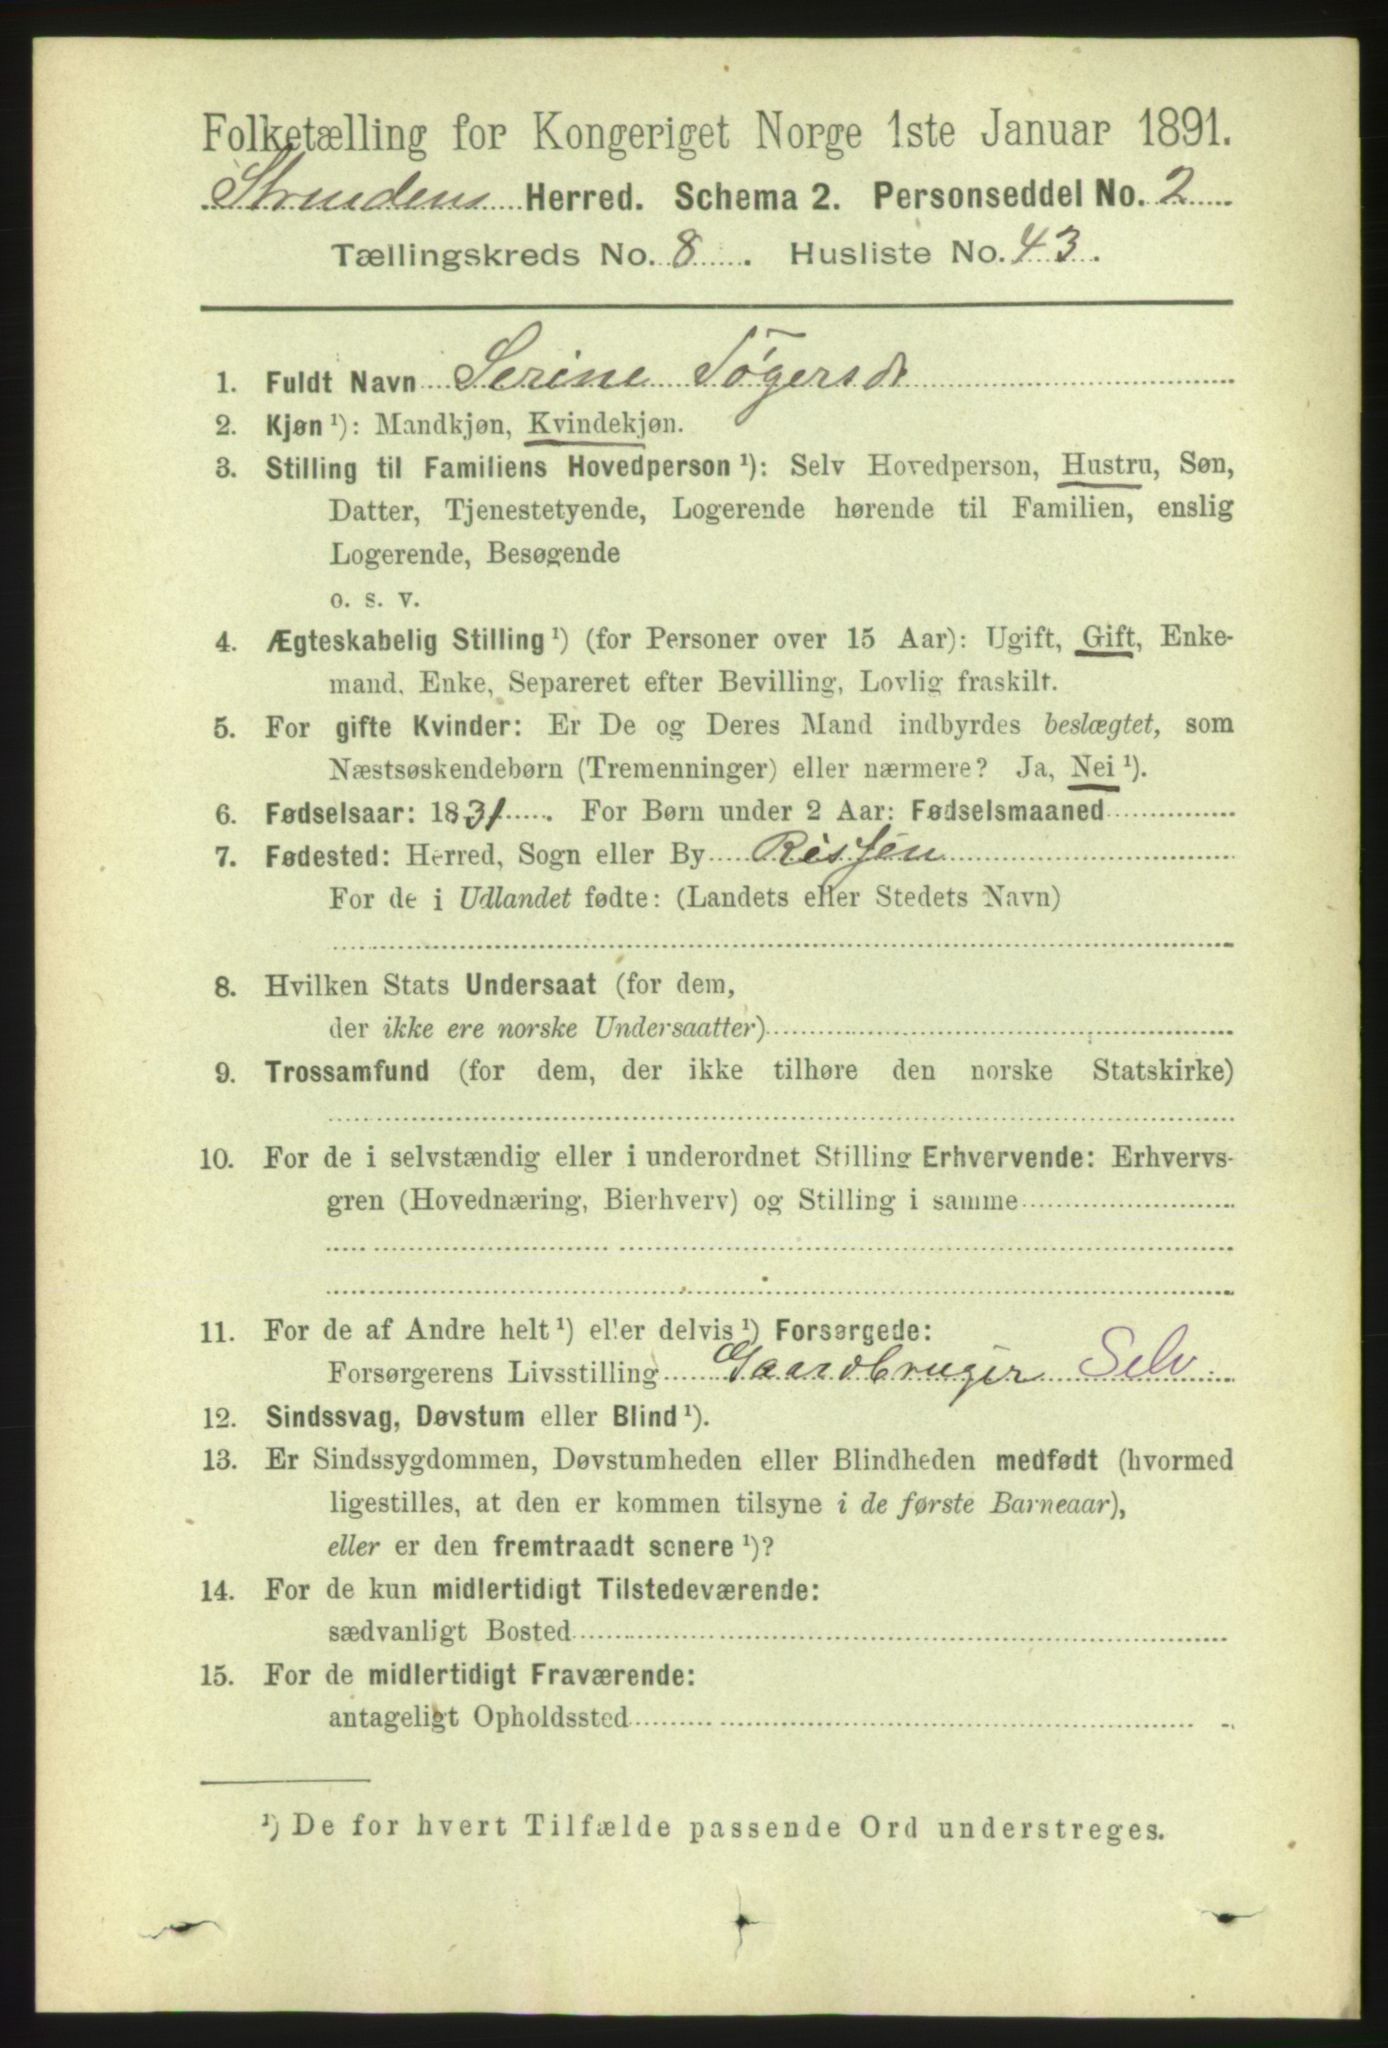 Folketælling for Kongeriget Norge 1ste Januar 1891.
Strindens Herred. Schema 2. Personseddel No. 2
Tællingskreds No. 8. Husliste No. 43.
1. Fuldt Navn Serine Tøgersd
2. Kjøn ¹): Mandkjøn, Kvindekjøn.
3. Stilling til Familiens Hovedperson ¹): Selv Hovedperson, Hustru, Søn,
Datter, Tjenestetyende, Logerende hørende til Familien, enslig
Logerende, Besøgende
o. s. v.
4. Ægteskabelig Stilling ¹) (for Personer over 15 Aar): Ugift, Gift, Enke-
mand, Enke, Separeret efter Bevilling, Lovlig fraskilt.
5. For gifte Kvinder: Er De og Deres Mand indbyrdes beslægtet, som
Næstsøskendebørn (Tremenninger) eller nærmere? Ja, Nei ¹).
6. Fødselsaar: 1831. For Børn under 2 Aar: Fødselsmaaned
7. Fødested: Herred, Sogn eller By Rissen
For de i Udlandet fødte: (Landets eller Stedets Navn)
8. Hvilken Stats Undersaat (for dem,
der ikke ere norske Undersaatter)
9. Trossamfund (for dem, der ikke tilhøre den norske Statskirke)
10. For de i selvstændig eller i underordnet Stilling Erhvervende: Erhvervs-
gren (Hovednæring, Bierhverv) og Stilling i samme
11. For de af Andre helt ¹) eller delvis ¹) Forsørgede:
Forsørgerens Livsstilling Gaardbruger Selv.
12. Sindssvag, Døvstum eller Blind ¹).
13. Er Sindssygdommen, Døvstumheden eller Blindheden medfødt (hvormed
ligestilles, at den er kommen tilsyne i de første Barneaar),
eller er den fremtraadt senere ¹)?
14. For de kun midlertidigt Tilstedeværende:
sædvanligt Bosted
15. For de midlertidigt Fraværende:
antageligt Opholdssted
¹) De for hvert Tilfælde passende Ord understreges.